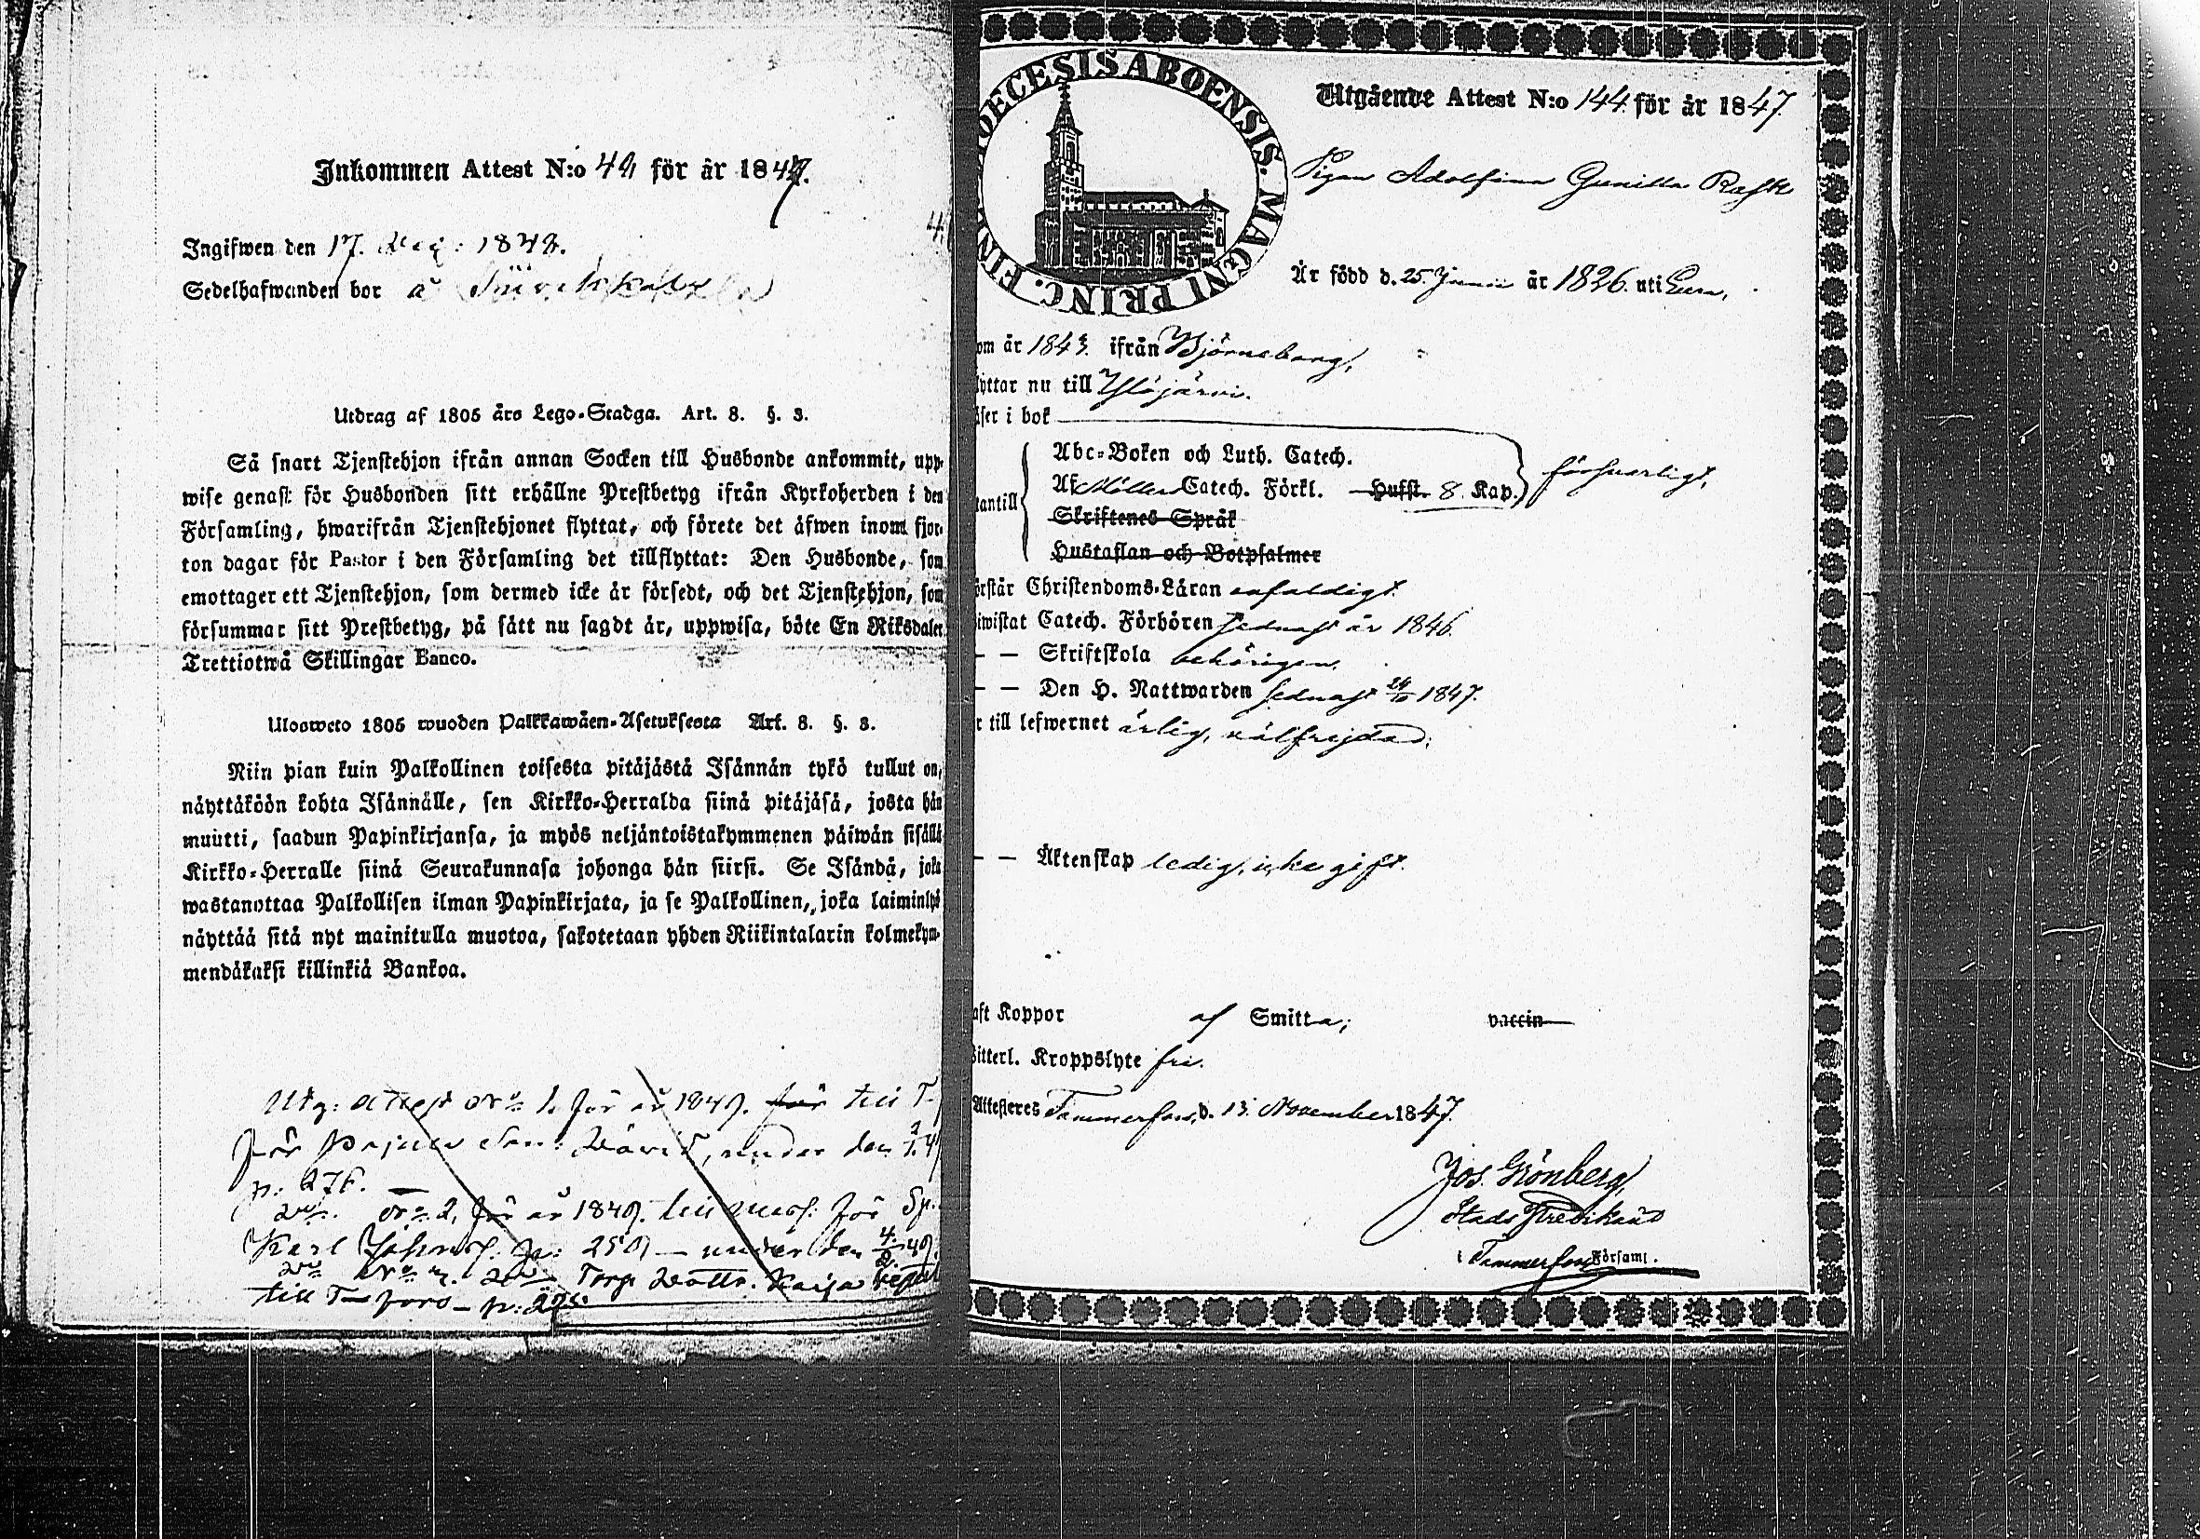 Inkommen Attest N:o 49 för år 1847.
Ingifwen den 17. 1848.
Sedelhafwanden bor å
Utdrag af 1805 års Lego-Stadga. Art. 8. §. 3.
Så snart Tjenstehjon ifrån annan Socken till Husbonde ankommit, upp-
wise genast för Husbonden sitt erhållne Prestbetyg ifrån Kyrkoherden i den
Församling, hwarifrån Tjenstehjonet flyttat, och förete det äfwen inom fjor-
ton dagar för Pastor i den Församling det tillflyttat: Den Husbonde, som
emottager ett Tjenstehjon, som dermed icke är försedt, och det Tjenstehjon, som
försummar sitt Prestbetyg, på sätt nu sagdt är, uppwisa, böte En Riksdaler
Trettiotwå Skillingar Banco.
Ulosweto 1805 wuoden Palkkawäen-Asetuksesta Art. 8. §. 3.
Niin pian kuin Palkollinen toisesta pitäjästä Isännän tykö tullut on,
näyttäköön kohta Isännälle, sen Kirkko-Herralda siinä pitäjäsä, josta hän
muutti, saadun Papinkirjansa, ja myös neljäntoistakymmenen päiwän sisällä
Kirkko-Herralle siinä Seurakunnasa johonga hän siirsi. Se Isändä, joka
wastanottaa Palkollisen ilman Papinkirjata, ja se Palkollinen, joka laiminlyö
näyttää sitä nyt mainitulla muotoa, sakotetaan yhden Riikintalarin kolmekym-
mendäkaksi killinkiä Bankoa.
Utg: attest N:o 1. för år 1849. för till T-
för Son: David, under den
p: 276.
N:o 2, för år 1849. till för
Karl p: 259 – under den
Torp Kaija
till T–fors – p:
DIOECESIS ABOENSIS. MAGNI PRINC. FIN
Utgående Attest N:o 144. för år 1847.
Pigan Adolfina Gunilla Rask
Är född d. 25 Junii år 1826. uti Eura,
om år 1843. ifrån Björneborg,
lyttar nu till Ylöjärvi.
äser i bok
Abc-Boken och Luth. Catech.
Af Möllers Catech. Förkl. Husst. 8 Kap. försvarligt,
tantill
Skriftenes Språk
Hustaflan och Botpsalmer
örstår Christendoms-Läran enfaldigt.
iwistat Catech. Förhören sednast år 1846.
— — Skriftskola behörigen.
— — Den H. Nattwarden sednast 1847.
r till lefwernet ärlig, välfrejdad;
— — Äktenskap ledig, icke gift.
aft Koppor af Smitta; vaccin
itterl. Kroppslyte fri.
Attesteres Tammerfors, d. 13. November 1847.
Jos. Grönberg,
Stads Predikant
i Tammerfors Församl.